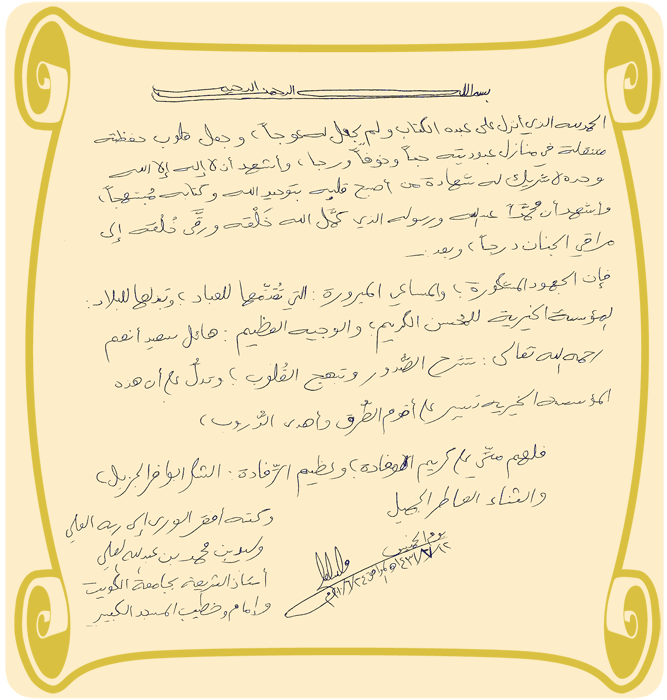 بسم الله الرحمن الرحيم
الحمد لله الذي أنزل على عبده الكتاب ولم يجعل له عوجاً، وجعل قلوب حفظته
متنقلة في منازل عبوديته حباً وخوفاً ورجا، وأشهد أن لا إله إلا الله
وحده لا شريك له شهادة من أصبح قلبه بتوحيد الله وكتابه مُبتهجاً،
وأشهد أن محمَّداً عبد الله ورسوله الذي كمَّل الله خَلْقه ورقَّى خُلُقه إلى
مراقي الجنان درجاً، وبعد..
فإن الجهود المشكورة؛ والمساعي المبرورة: التي تُقدِّمها للعباد، وتبذلها للبلاد:
المؤسسة الخيرية للمُحسن الكريم؛ والوجيه العظيم: هائل سعيد أنعم
رحمه الله تعالى: تشرح الصُّدور وتبهج القُلوب؛ وتدلُّ على أن هذه
المؤسسة الخيرية تسير على أقوم الطُّرق وأهدى الدُّروب،
فلهم منِّي على كريم الوفادة؛ وعظيم الرِّفادة: الشكر الوافر الجزيل،
والثناء العاطر الجميل
وكتبه أفقر الورى إلى ربه العلي
وليد بن محمد بن عبد الله العلي
أستاذ الشريعة بجامعة الكويت
وإمام وخطيب المسجد الكبير
يوم الخميس